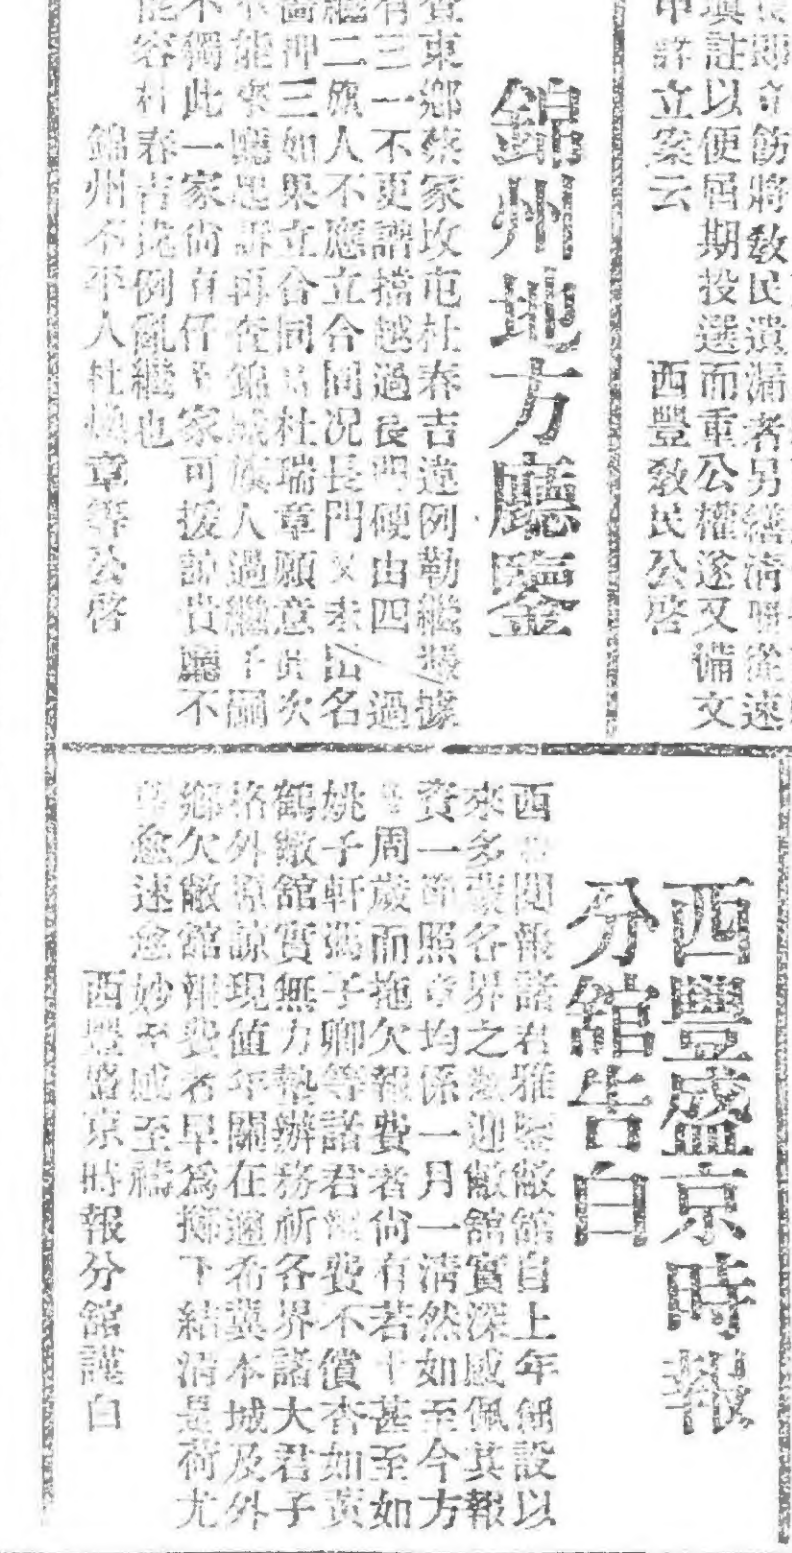 即立飭將教民遺漏者另繕清冊從速
填註以便屆期投選而重公權遂又備文
申詳立案云
西豐教民公啓
錦州地方廳鑒
查東鄉蔡家坟屯杜春吉違例勒繼據
有三一不更譜擋越過長門硬由四 過
繼二族人不應立合同况長門又未出名
畫押三如果立合同 杜瑞章願意 次
不能來廳起訴再查錦城旗人過繼子嗣
不獨此一家尙有 家可援 貴廳不
能容杜春吉 例亂繼也
錦州不平人杜 章等公啓
西豐盛京時報
分館告白
西 閱報諸君雅鑒敝館自上年創設以
來多蒙各界之歡迎敝館實深感佩其報
資一節照章均係一月一清然如至今方
周歲而拖欠報費者尙有若干甚至如
姚子軒 子卿等諸君報費不償杳如黃
鶴敝館實無力墊辦務祈各界諸大君子
格外原諒現值年關在邇希冀本城及外
鄉欠敝館報費者早爲擲下結清是荷尤
愈速愈妙至感至禱
西豐盛京時報分館謹白